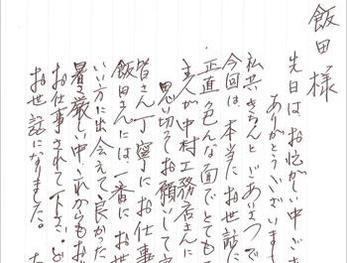 飯田様
先日はお忙しい中ご
ありがとうございま
私共きちんとごあいさつで
今回は、本当にお世話に
正直色んな面でとても
主人が中村工務店さんに
思い切ってお願いして
皆さん丁寧にお仕事
飯田さんには一番にお世
いい方に出会えて良かった
暑さ厳しい中これからもお
お仕事されて下さい。ど
お世話になりました。